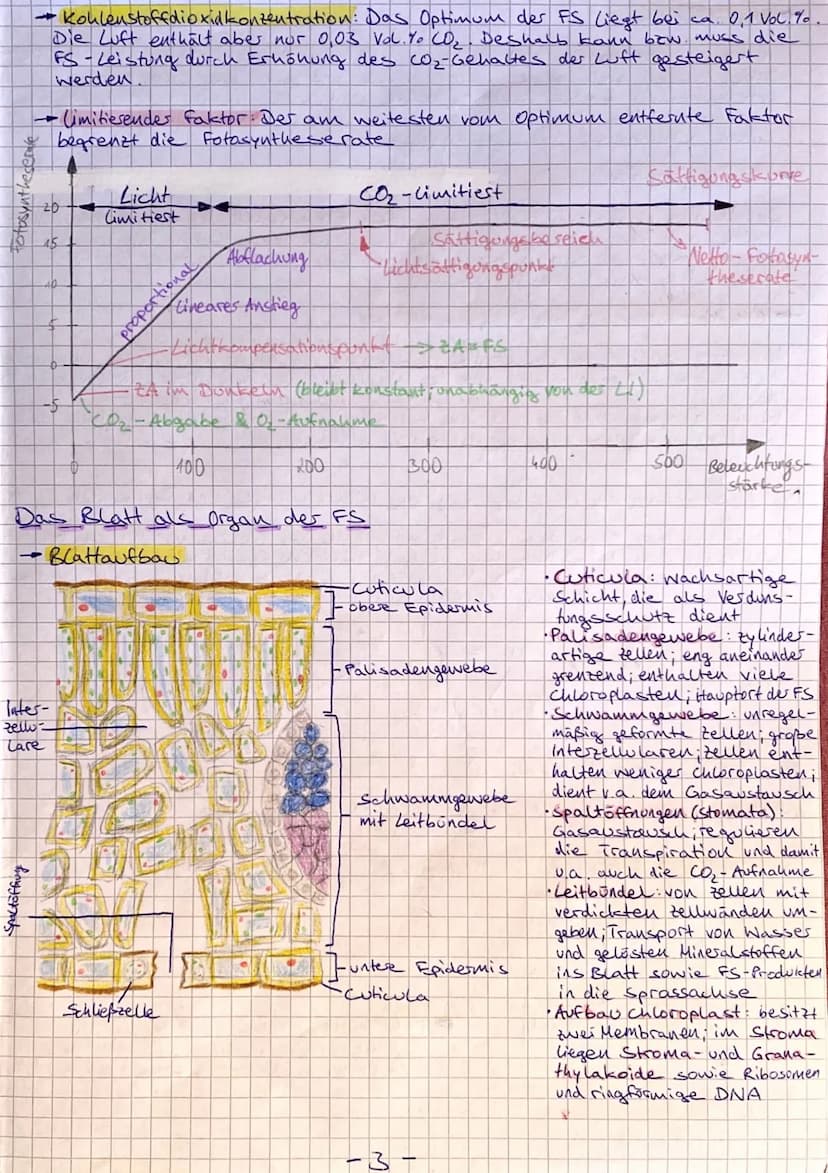 → Kohlenstoffdioxidkonzentration: Das Optimum der FS liegt bei ca. 0,1 Vol.%.
Die Luft enthält aber nur 0,03 Vol.% CO₂. Deshalb kann bzw. muss die
FS-Leistung durch Erhöhung des CO₂-Gehaltes der Luft gesteigert
werden.
→ Limitierender Faktor: Der am weitesten vom Optimum entfernte Faktor
begrenzt die Fotosyntheserate
Fotosyntheserate
20
15
10
5
0
-5
Licht
limitiert
CO₂-limitiert
Sättigungskurve
proportional
Abflachung
Lineares Anstieg
Sättigungsbereich
Lichtsättigungspunkt
Netto-Fotosyn-
theserate
Lichtkompensationspunkt → ZA=FS
ZA im Dunkeln (bleibt konstant; unabhängig von der LI)
CO₂-Abgabe & O₂-Aufnahme
0 100 200 300 400 500
Beleuchtungs-
stärke
Das Blatt als Organ der FS
→ Blattaufbau
Cuticula
obere Epidermis
Palisadengewebe
Inter-
zellu-
lare
Schwammgewebe
mit Leitbündel
Spaltöffnung
untere Epidermis
Cuticula
Schließzelle
· Cuticula: wachsartige
Schicht, die als Verduns-
tungsschutz dient
· Palisadengewebe: zylinder-
artige Zellen; eng aneinander
grenzend; enthalten viele
Chloroplasten; Hauptort der FS
· Schwammgewebe: unregel-
mäßig geformte Zellen; große
Interzellularen; Zellen ent-
halten weniger Chloroplasten;
dient v.a. dem Gasaustausch
· Spaltöffnungen (Stomata):
Gasaustausch; regulieren
die Transpiration und damit
u.a. auch die CO₂-Aufnahme
· Leitbündel: von Zellen mit
verdickten Zellwänden um-
geben; Transport von Wasser
und gelösten Mineralstoffen
ins Blatt sowie FS-Produkten
in die Sprossachse
· Aufbau Chloroplast: besitzt
zwei Membranen; im Stroma
liegen Stroma- und Grana-
thylakoide sowie Ribosomen
und ringförmige DNA
- 3 -